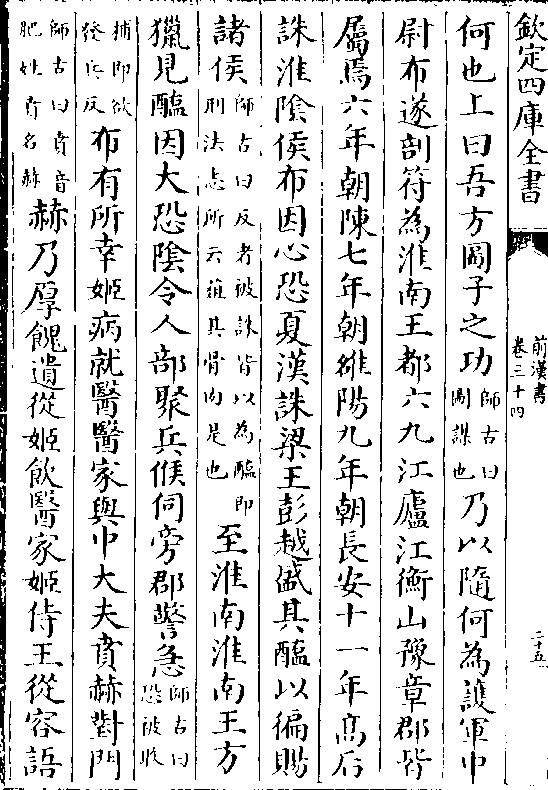 欽定四庫全書
前漢書
卷三十四
二十五
何也上曰吾方圖子之功師古曰圖謀也乃以隨何為護軍中
尉布遂剖符為淮南王都六九江廬江衡山豫章郡皆
屬焉六年朝陳七年朝雒陽九年朝長安十一年髙后
誅淮隂侯布因心恐夏漢誅梁王彭越盛其醢以徧賜
諸侯師古曰反者被誅皆以為醢即刑法志所云葅其骨肉是也至淮南淮南王方
獵見醢因大恐隂令人部聚兵候伺旁郡警急師古曰恐被收
捕即欲發兵反布有所幸姬病就醫醫家與中大夫賁赫對門
師古曰賁音肥姓賁名赫赫乃厚餽遺從姬飲醫家姬侍王從容語